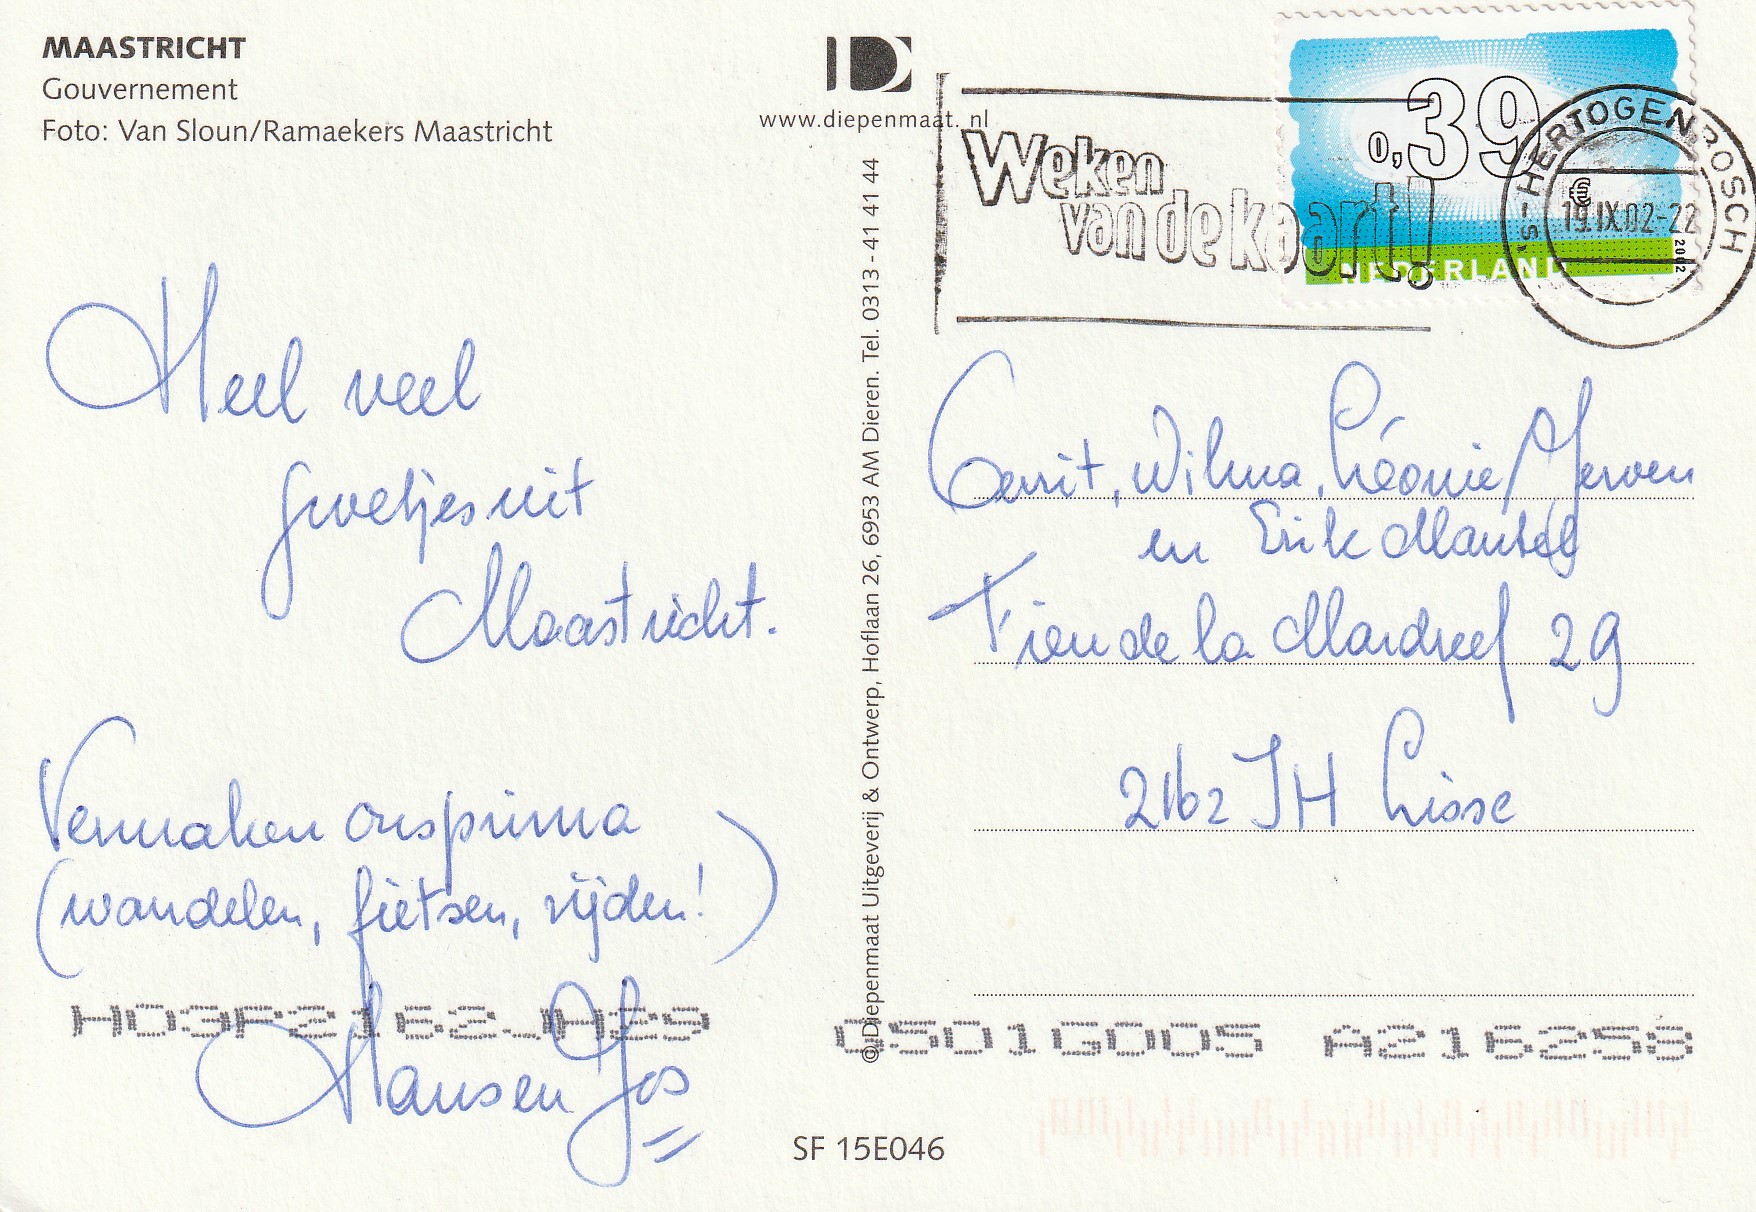 MAASTRICHT
Gouvernement
Foto: Van Sloun/Ramaekers Maastricht
www.diepenmaat.nl
Weken
van de kaart!
0,39
€
NEDERLAND
2002
'S-HERTOGENBOSCH
19.IX.02-22
Heel veel
groetjes uit
Maastricht.
Vermaken ons prima
(wandelen, fietsen, rijden!)
Hans en Jos
© Diepenmaat Uitgeverij & Ontwerp, Hoflaan 26, 6953 AM Dieren. Tel. 0313 - 41 41 44
Gerrit, Wilma, Léonie, Jeroen
en Erik
29
2162 JH Lisse
HO3F2162JH29
QSO1GOO5 A216258
SF 15E046